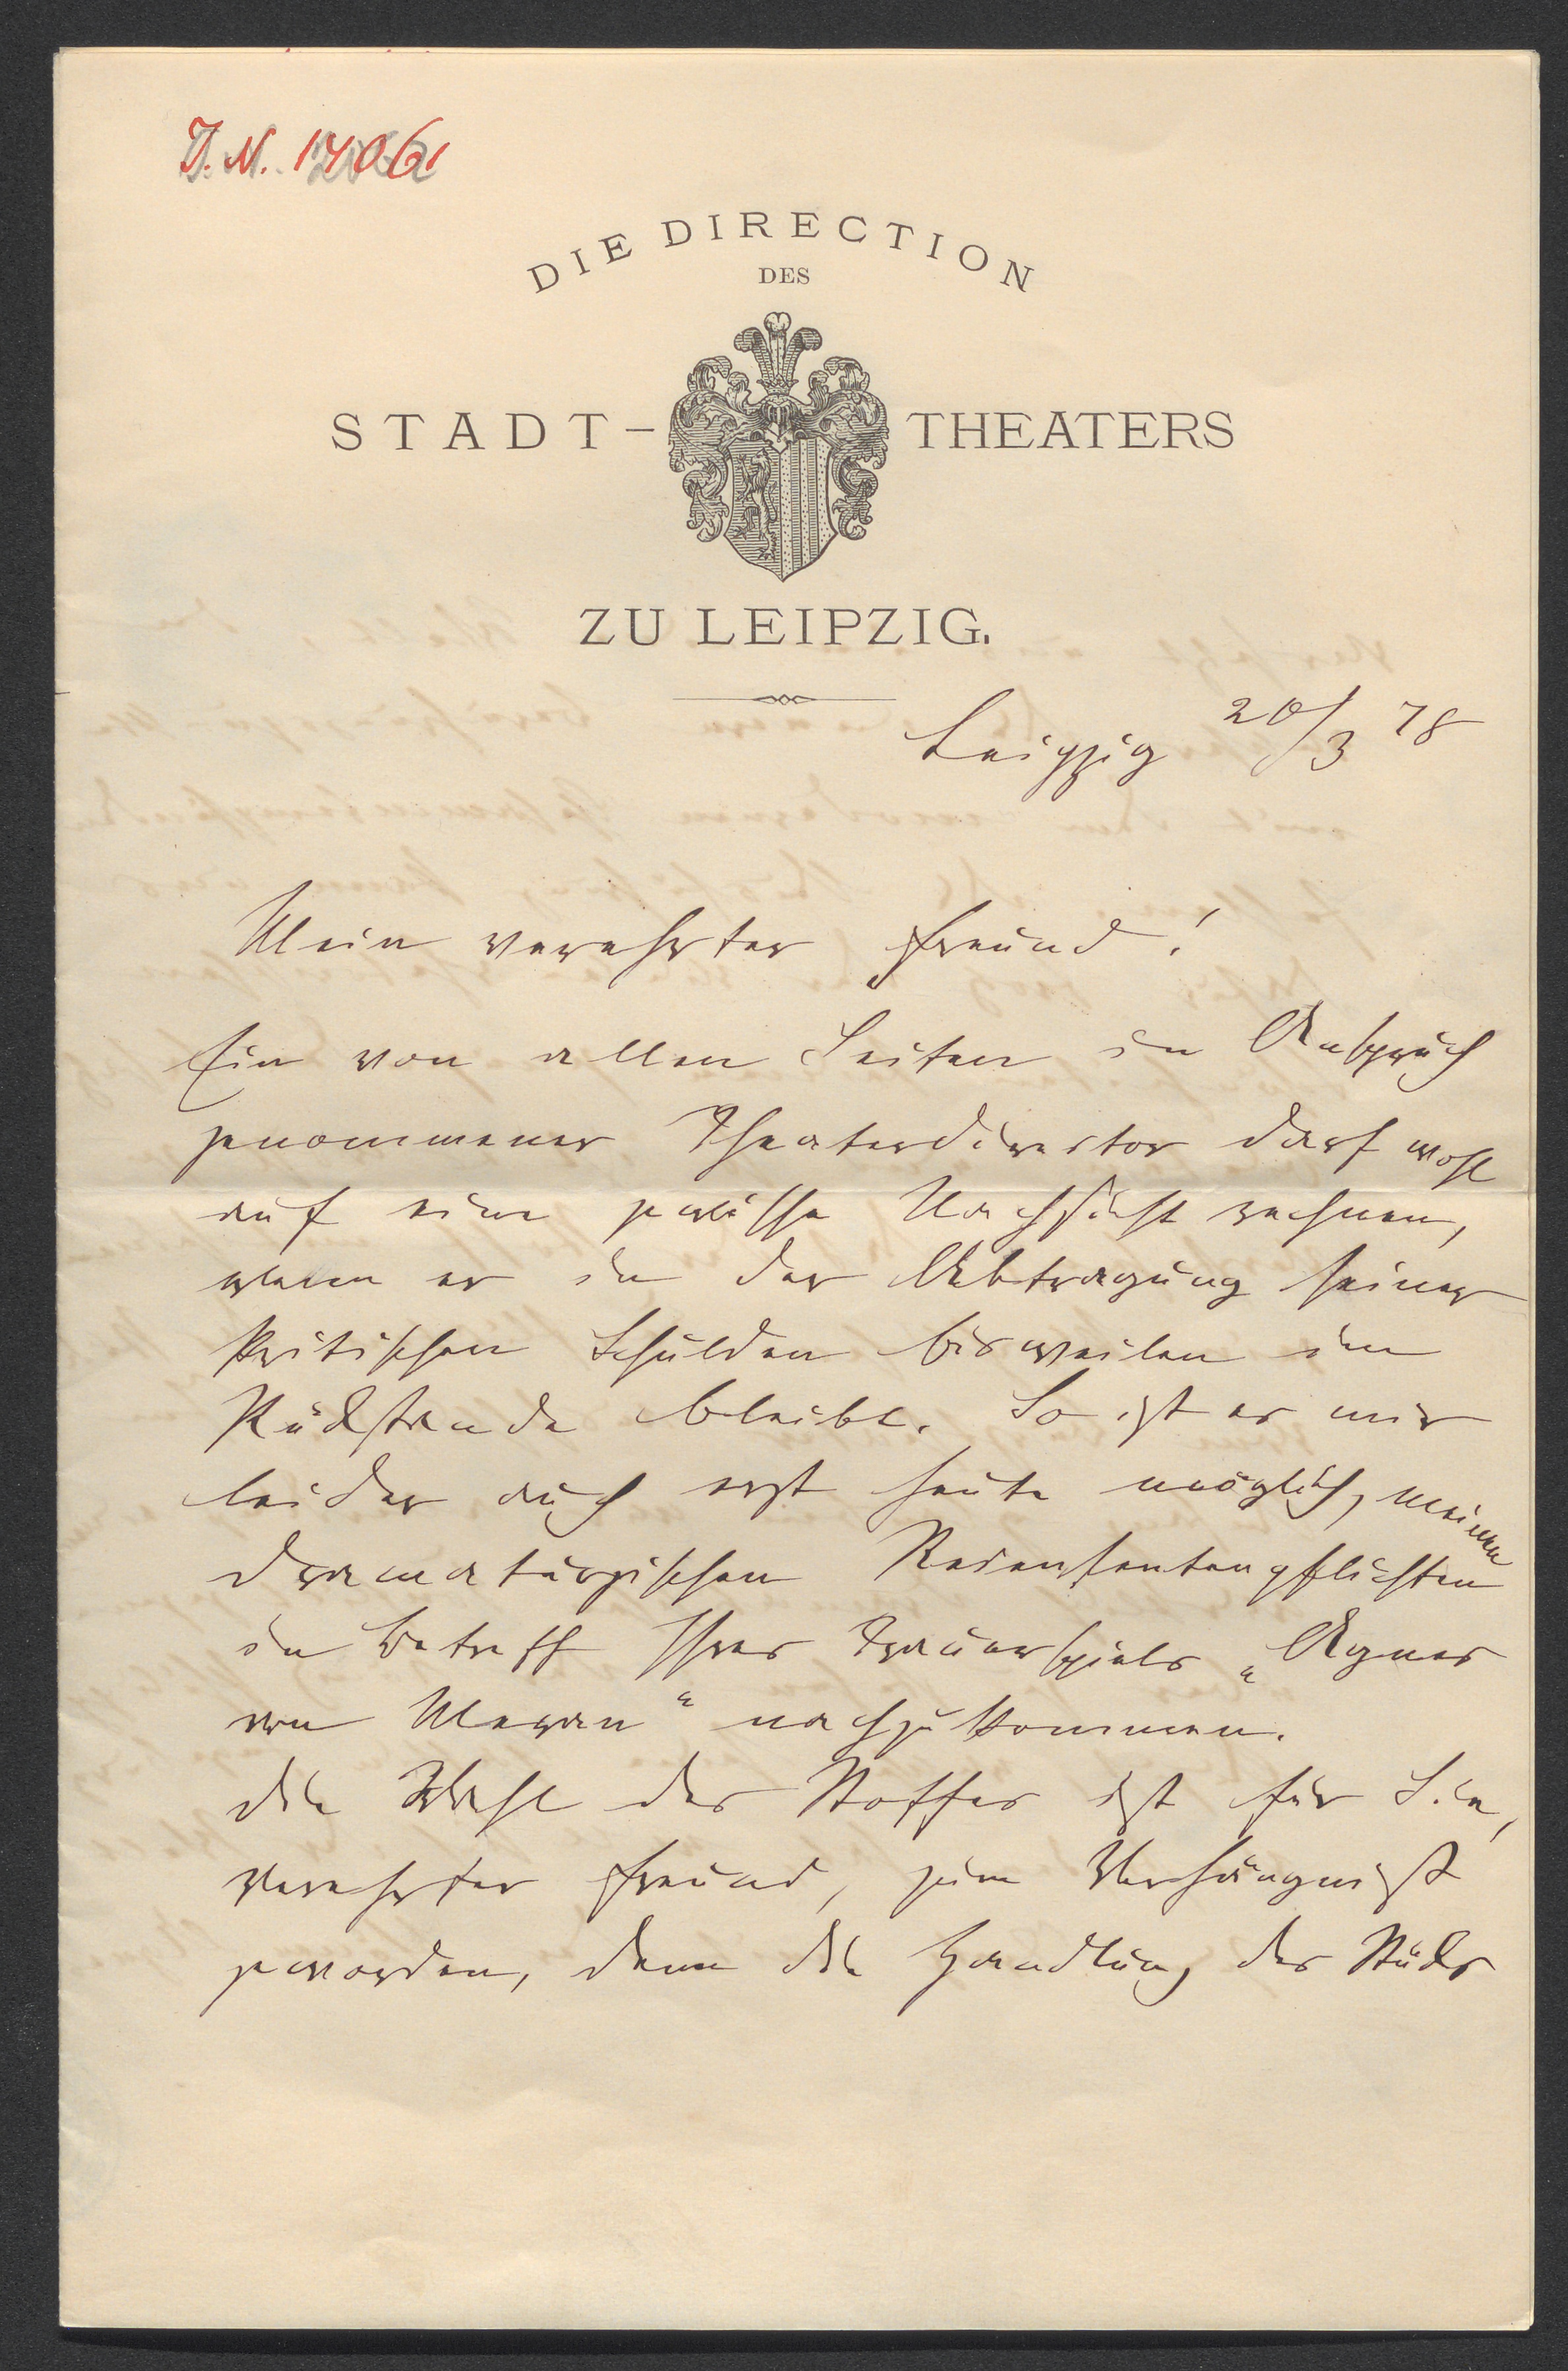 J. N. 17061
DIE DIRECTION
DES
STADT-THEATERS
ZU LEIPZIG.
Leipzig 20/3 78
Mein verehrter Freund!
Ein von allen Seiten in Anspruch
genommener Theaterdirector darf wohl
auf eine gewisse Nachsicht rechnen,
wenn er in der Abtragung seiner
kritischen Schulden bisweilen im
Rückstande bleibt. So ist es mir
leider auch erst heute möglich, meinen
dramaturgischen Recensentenpflichten
in Betreff Ihres Trauerspiels „Agnes
von Meran“ nachzukommen.
Die Wahl des Stoffes ist für Sie,
verehrter Freund, zum Verhängnißt
geworden, denn die Handlung des Stücks